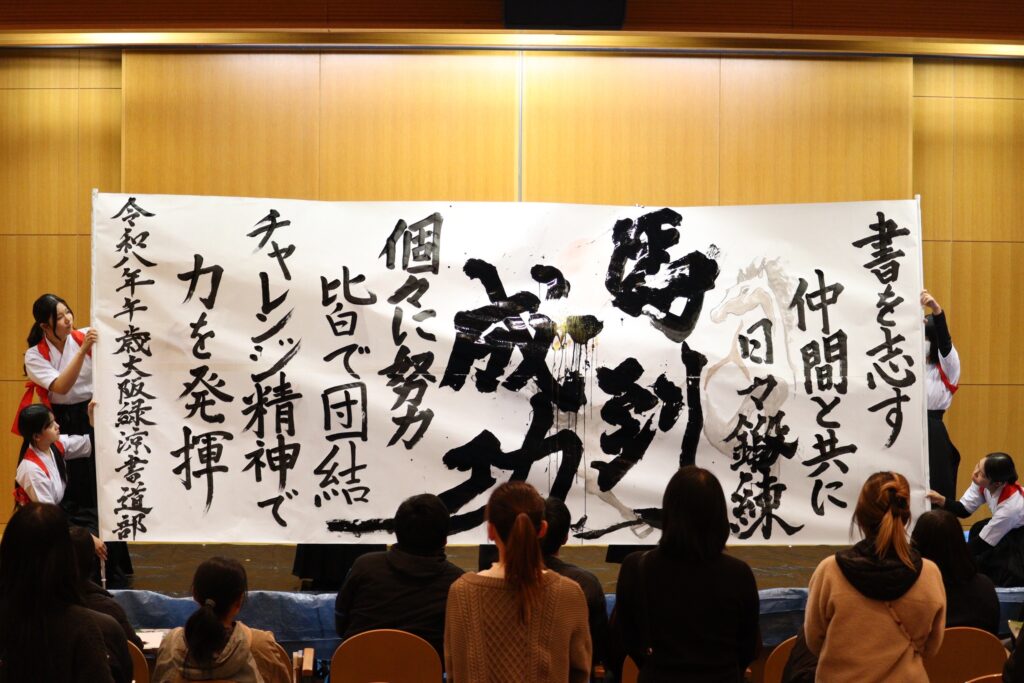 書を志す
仲間と共に
日々鍛練
馬到
成功
個々に努力
皆で団結
チャレンジ精神で
力を発揮
令和八年午歳大阪緑涼書道部